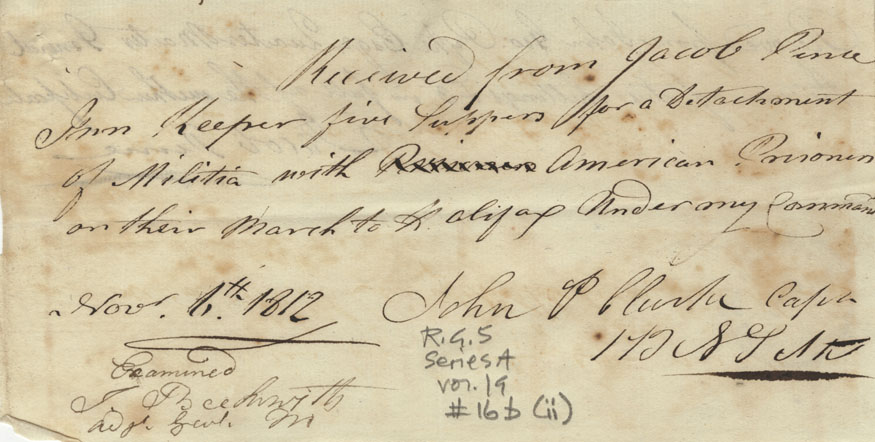 Received from Jacob Pence
Inn Keeper five Suppers for a Detachment
of Militia with American Prisoners
on their March to Halifax Under my Command
Novr. 6.th 1812 John P Clark Capn
Examined
T. Beckwith
Adjt. Genl. M
R.G. 5
Series A
Vol. 19
#16b (ii)